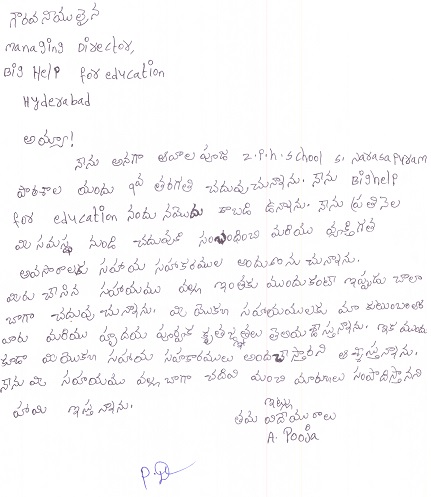 గౌరవనీయులైన
Managing Director,
Big Help for education
Hyderabad
అయ్యా!
నేను అనగా ఆవాల పూజ Z.P.H. School S. Narasapuram
పాఠశాల యందు 10వ తరగతి చదువుచున్నాను. నేను Bighelp
for education నందు నమోదు కాబడి ఉన్నాను. నేను ప్రతినెల
మీ సమస్థ నుండి చదువుకి సంబంధించి మరియు వ్యక్తిగత
అవసరాలకు సహాయ సహకారముల అందుకొనుచున్నాను.
మీరు చేసిన సహాయము వల్ల ఇంతకు ముందుకంటే ఇప్పుడు చాలా
బాగా చదువుచున్నాను. మీ యొక్క సహాయములకు మా కుటుంబం తర
వారు మరియు హృదయ పూర్వక కృతజ్ఞతలు తెలియజేస్తున్నాను. ఇక ముందు
కూడా మీ యొక్క సహాయ సహకారములు అందచేస్తారని ఆశిస్తున్నాను.
నేను మీ సహాయము వల్ల బాగా చదివి మంచి మార్కులు సంపాదిస్తానని
హామి ఇస్తున్నాను.
ఇట్లు
తమ విదేయురాలు
A. Pooja